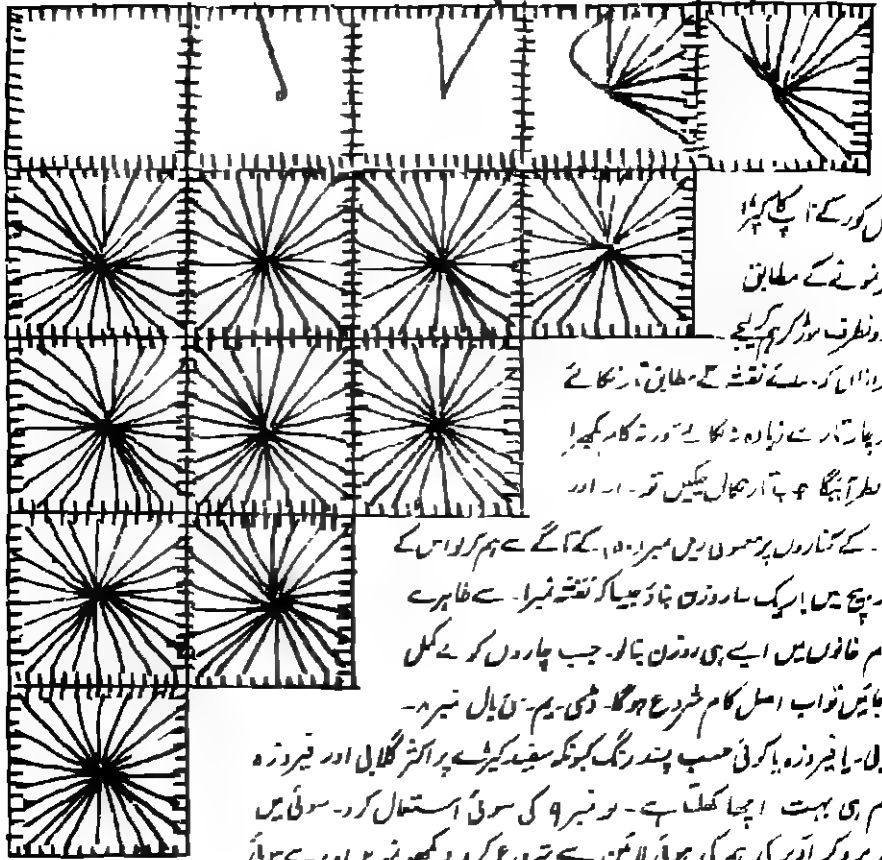 کور کے ناپ کا کپڑا
نمونے کے مطابق
موڑ کر ہم کیجیے
نقشہ کے مطابق تار نکالئے
تار سے زیادہ نہ نکالئے ورنہ کام
نظر آئیگا جب تار نکال چکیں تو اور
کے کناروں پر معمولی ریل نمبر ۱۵۰ کے تاگے سے ہم کرلو اس کے
بیچ میں باریک سا روزن بناؤ جیسا کہ نقشہ نمبر۱۔ سے ظاہر ہے
خانوں میں ایسے ہی روزن بنالو۔ جب چاروں کونے مکمل
جائیں تو اب اصل کام شروع ہوگا۔ ڈی۔یم۔سی بال نمبر ۸۔
یا فیروزہ یا کوئی حسب پسند رنگ کیونکہ سفید کپڑے پر اکثر گلابی اور فیروزہ
ہی بہت اچھا کھلتا ہے۔ لو نمبر ۹ کی سوئی استعمال کرو۔ سوئی میں
پرو کر اوپر کی ہم کی ہوئی لائین سے شروع کرو دیکھو